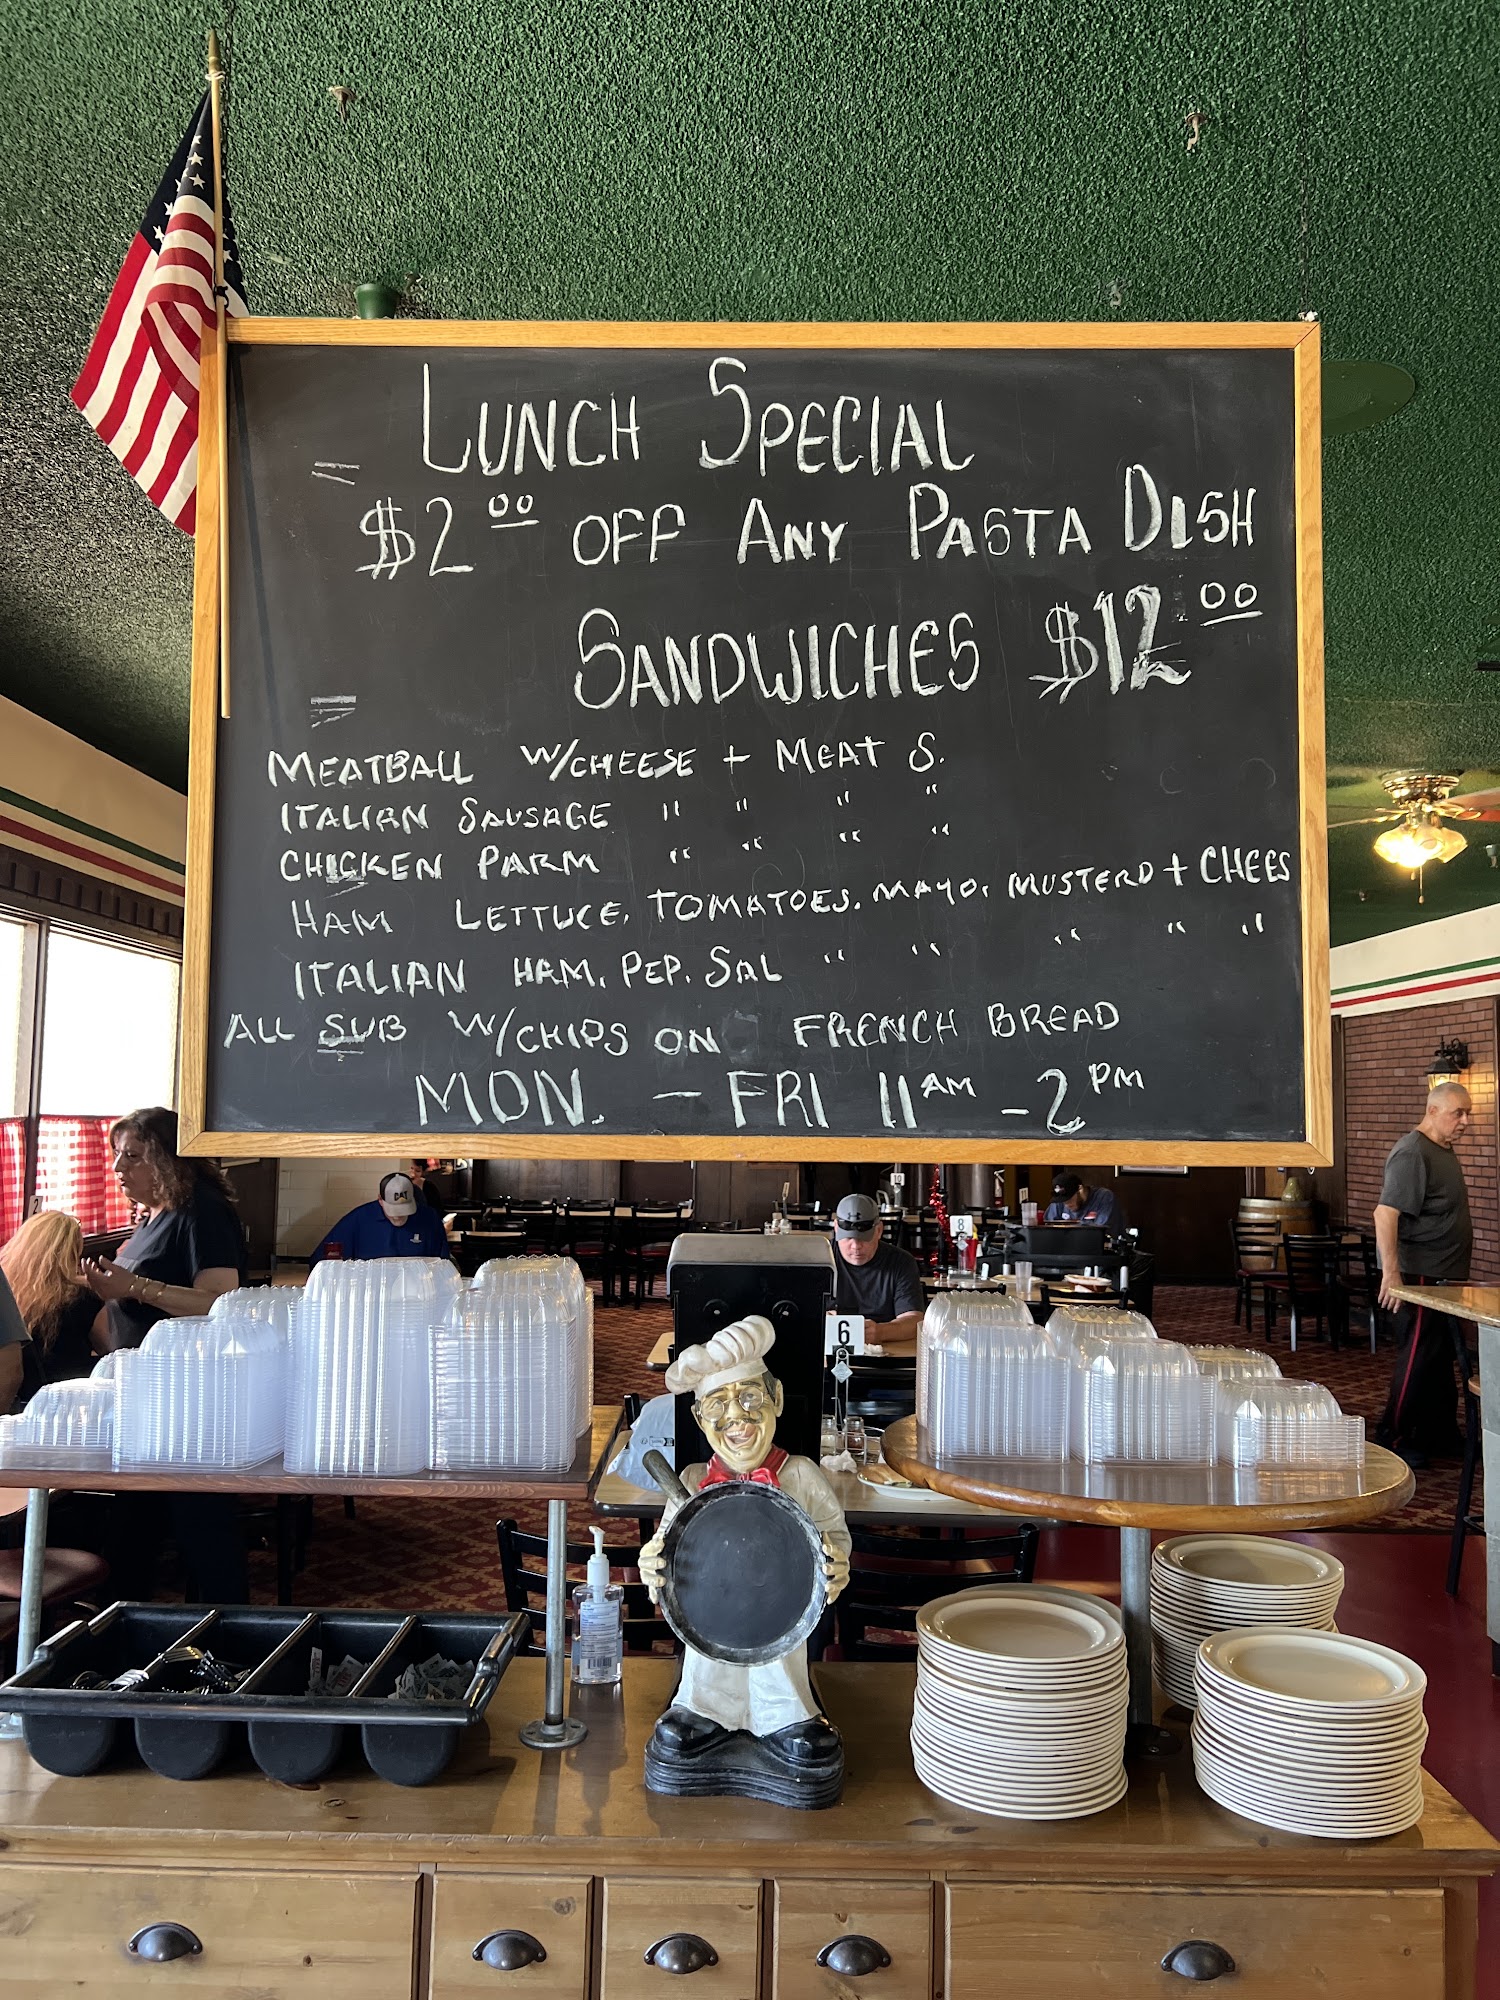 LUNCH SPECIAL
$2.00 OFF ANY PASTA DISH
SANDWICHES $12.00
MEATBALL W/CHEESE + MEAT S.
ITALIAN SAUSAGE " " " "
CHICKEN PARM " " " "
HAM LETTUCE, TOMATOES, MAYO, MUSTERD + CHEES
ITALIAN HAM, PEP, SAL " " " " "
ALL SUB W/CHIPS ON FRENCH BREAD
MON. - FRI 11AM - 2PM
CAT
10
8
6